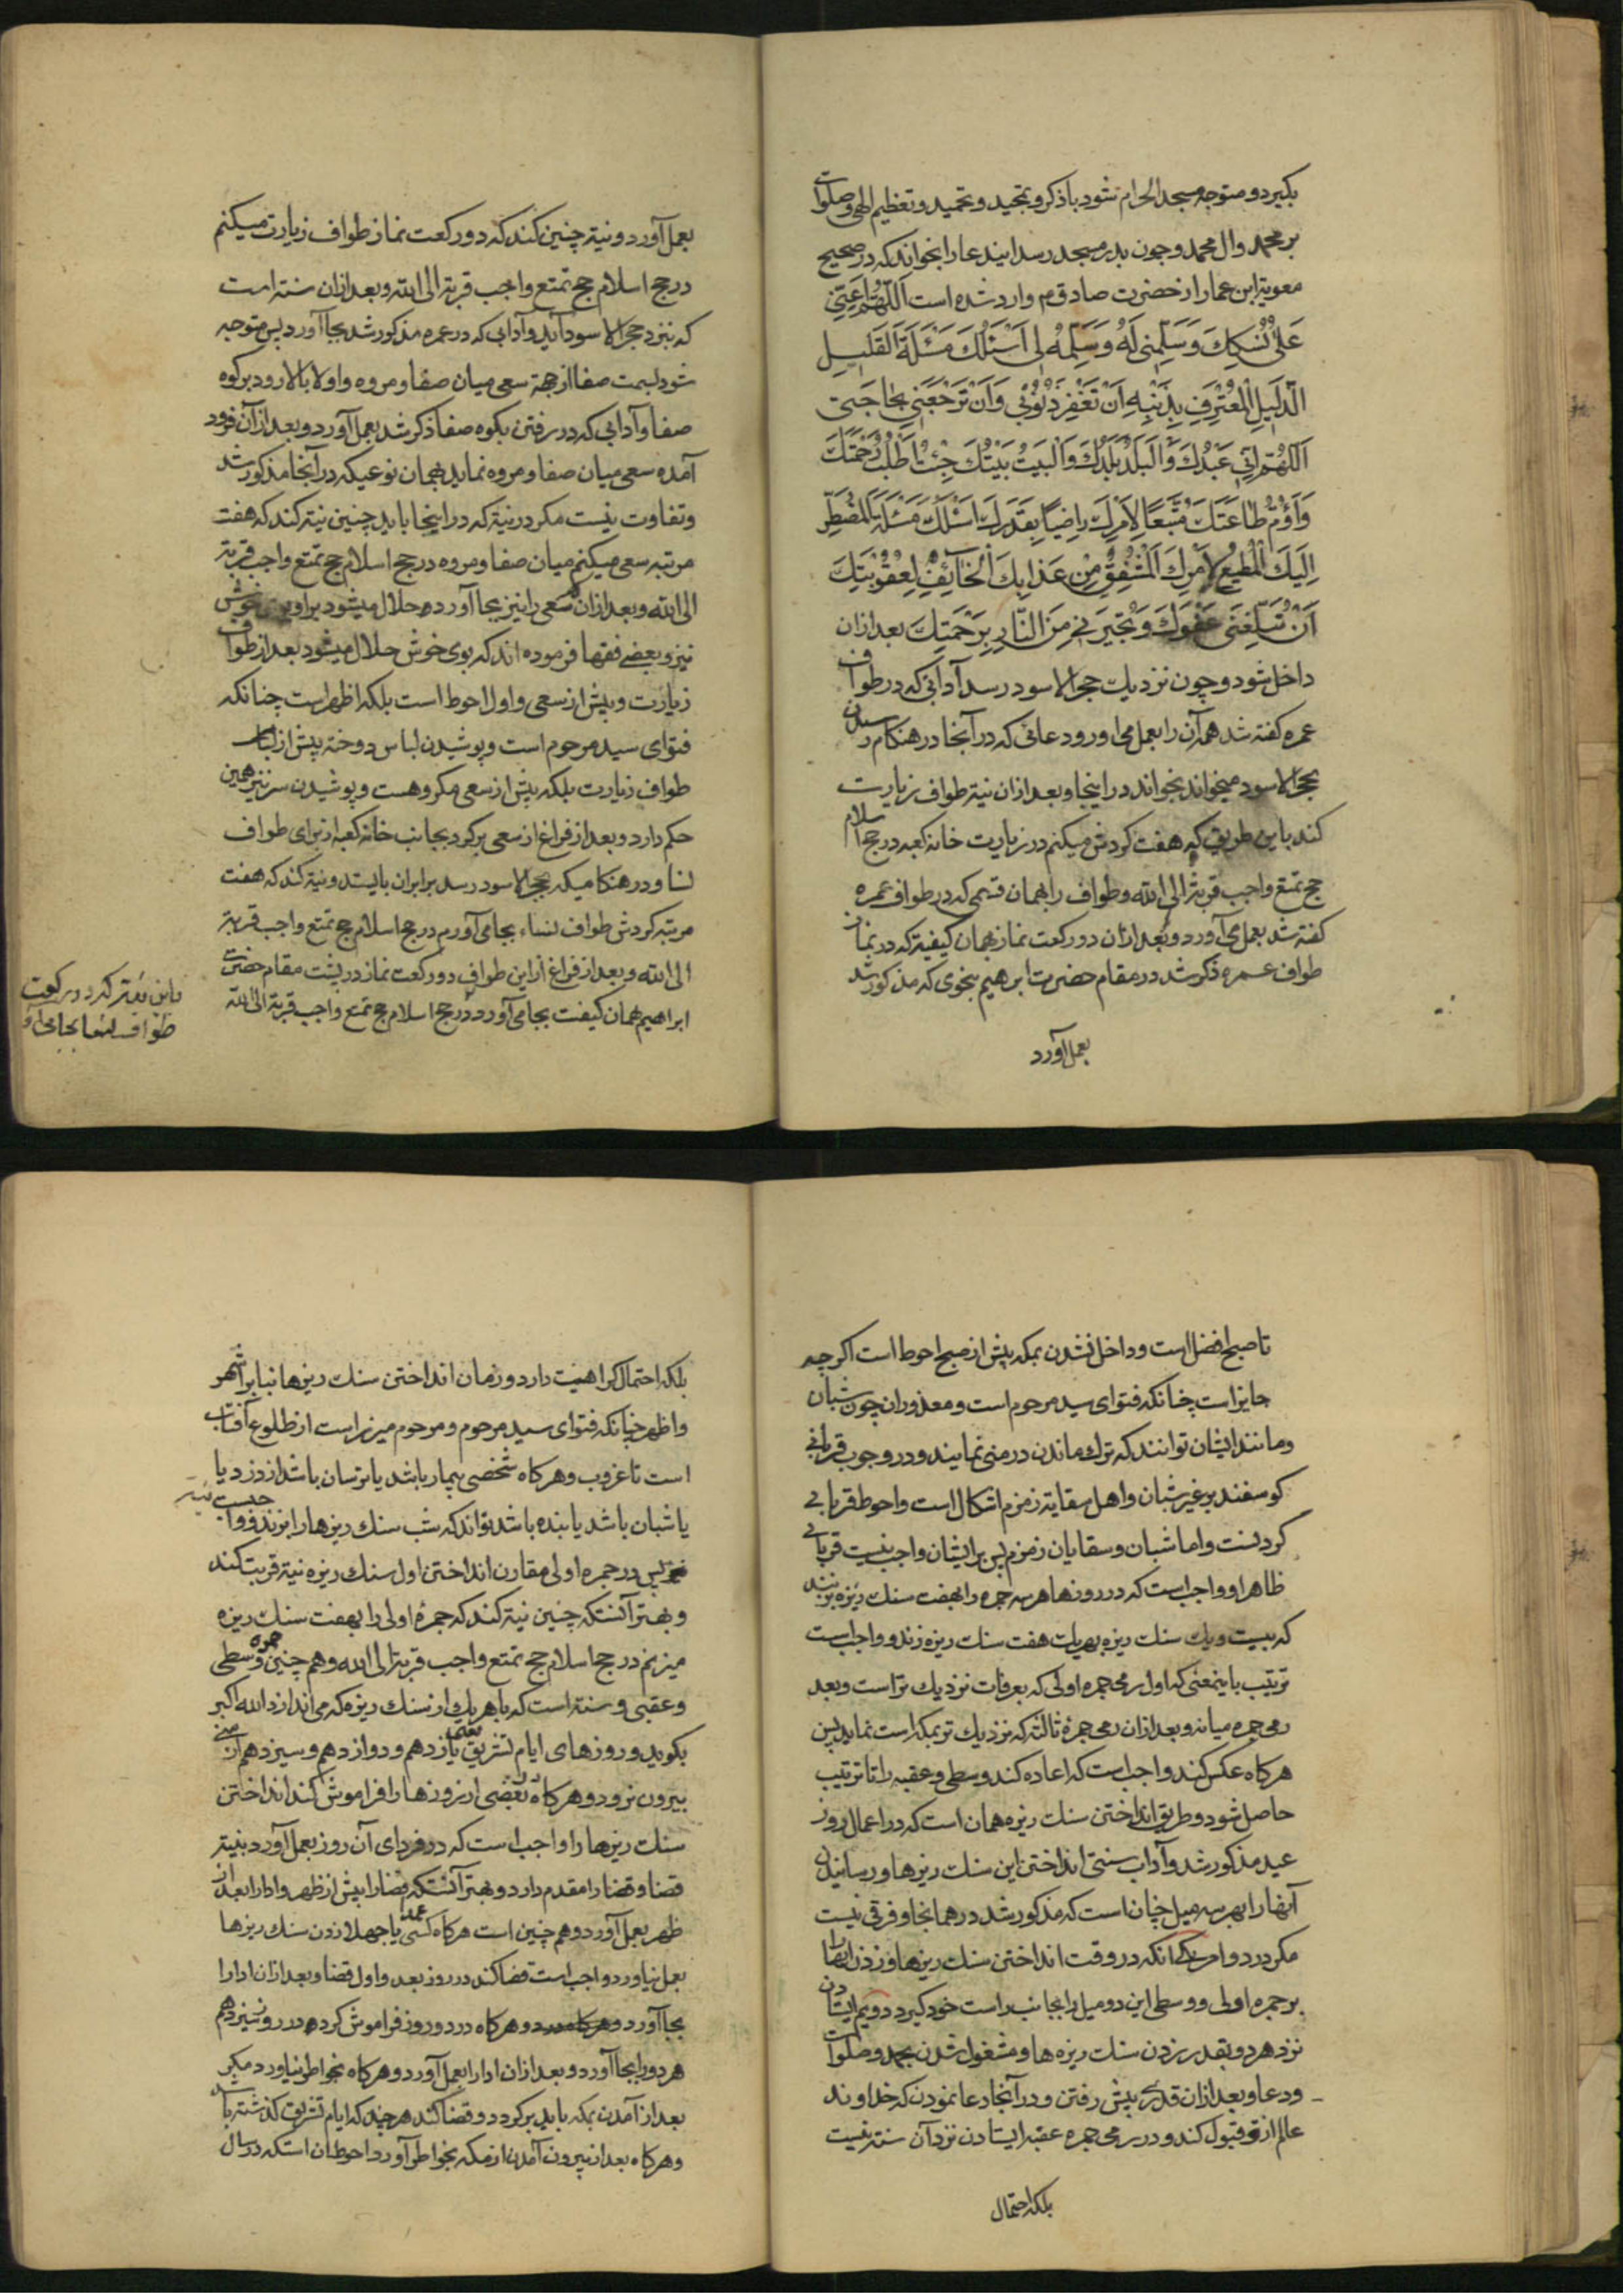 بکیرد و متوجه مسجد الحرام شود با ذکر و تمجید و تحمید و تعظیم الهی و صلوات
بر محمد وال محمد و چون بدر مسجد رسد ایندعا را بخواند که در صحیح
معویة ابن عمار از حضرت صادق م وارد شده است اَللّهُمَّ اَعِنّی
عَلی نُسُکِکَ وَ سَلِّمْنی لَهُ وَ سَلِّمْهُ لی اَسْئَلُکَ مَسْئَلَةَ القَلیلِ
الذَّلیلِ المُعْتَرِفِ بِذَنْبِهِ اَنْ تَغْفِرَ ذُنُوبی وَ اَنْ تَرْجِعَنی بِحاجَتی
اَللّهُمَّ اِنّی عَبْدُکَ وَالبَلَدُ بَلَدُکَ وَالبَیْتُ بَیْتُکَ جِئْتُ اَطْلُبُ رَحْمَتَکَ
وَ اَؤُمُّ طاعَتَکَ مُتَّبِعًا لِاَمْرِکَ راضِیًا بِقَدَرِکَ اَسْئَلُکَ مَسْئَلَةَ المُضْطَرِّ
اِلَیْکَ المُطیعِ لِاَمْرِکَ المُشْفِقِ مِنْ عَذابِکَ الخائِفِ لِعُقُوبَتِکَ
اَنْ تُبَلِّغَنی عَفْوَکَ وَ تُجیرَنی مِنَ النّارِ بِرَحْمَتِکَ بعد ازان
داخل شود و چون نزدیك حجر الاسود رسد آدابی که در طواف
عمره کفته شد همه آن را بعمل می اورد و دعائی که در آنجا در هنکام رسیدن
بحجر الاسود میخواند بخواند در اینجا و بعد ازان نیة طواف زیارت
کند باین طریق که هفت کردش میکنم در زیارت خانه کعبه در حج اسلام
حج تمتع واجب قربة الی الله و طواف را بهمان قسمی که در طواف عمره
کفته شد بعمل می آورد و بعد ازان دو رکعت نماز بهمان کیفیة که در نماز
طواف عمره ذکر شد در مقام حضرت ابرهیم بنحوی که مذکور شد
بعمل آورد
بعمل آورد و نیة چنین کند که دو رکعت نماز طواف زیارت میکنم
در حج اسلام حج تمتع واجب قربة الی الله و بعد ازان سنة است
که بنزد حجر الاسود آید و آدابی که در عمره مذکور شد بجا آورد پس متوجه
شود بسمت صفا از جهة سعی میان صفا و مروه و اولا بالا رود بر کوه
صفا و آدابی که در رفتن بکوه صفا ذکر شد بعمل آورد و بعد از آن فرود
آمده سعی میان صفا و مروه نماید بهمان نوعیکه در آنجا مذکور شد
و تفاوت نیست مکر در نیة که در اینجا باید چنین نیة کند که هفت
مرتبه سعی میکنم میان صفا و مروه در حج اسلام حج تمتع واجب قربة
الی الله و بعد ازان سعی را نیز بجا آورده حلال میشود بر او بوی خوش
نیز و بعضی فقها فرموده اند که بوی خوش حلال میشود بعد از طواف
زیارت و پیش از سعی و اول احوط است بلکه اظهر است چنانکه
فتوای سید مرحوم است و پوشیدن لباس دوخته پیش از
طواف زیارت بلکه پیش از سعی مکروهست و پوشیدن سر نیز همین
حکم دارد و بعد از فراغ از سعی برکردد بجانب خانه کعبه از برای طواف
نسا و در هنکامیکه بحجر الاسود رسد برابر ان بایستد و نیة کند که هفت
مرتبه کردش طواف نساء بجا می آورم در حج اسلام حج تمتع واجب قربة
الی الله و بعد از فراغ از این طواف دو رکعت نماز در پشت مقام حضرت
ابراهیم بهمان کیفیت بجا می آورد در حج اسلام حج تمتع واجب قربة الی الله
باین نیة که دو رکعت
طواف نسا بجا می آورد
تا صبح افضل است و داخل نشدن بمکه پیش از صبح احوط است اکرچه
جایز است چنانکه فتوای سید مرحوم است و معذوران چون شبان
و مانند ایشان توانند که ترك ماندن در منی نمایند و در وجوب قربانی
کوسفند بر غیر شبان و اهل سقایة زمزم اشکال است و احوط قربانی
کردنست و اما شبان و سقایان زمزم پس بر ایشان واجب نیست قربانی
ظاهرا و واجب است که در روزها هر سه جمره را بهفت سنك ریزه بزنند
که بیست و یك سنك ریزه بهریك هفت سنك ریزه زند و واجب است
ترتیب باینمعنی که اول رمی جمره اولی که بعرفات نزدیك تر است و بعد
رمی جمره میانه و بعد ازان رمی جمره ثالثه که نزدیك تر بمکه است نماید پس
هرکاه عکس کند واجب است که اعاده کند وسطی و عقبه را تا ترتیب
حاصل شود و طریق انداختن سنك ریزه همان است که در اعمال روز
عید مذکور شد و آداب سنتی انداختن این سنك ریزها و رسانیدن
آنها را بهر سه میل چنان است که مذکور شد در همانجا و فرقی نیست
مکر در دو امر یکی آنکه در وقت انداختن سنك ریزها و زدن انها را
بر جمره اولی و وسطی این دو میل را بجانب راست خود کیرد دویم ایستادن
نزد هر دو بقدر زدن سنك ریزه ها و مشغول شدن بحمد و صلوات
و دعا و بعد ازان قدری پیش رفتن و در آنجا دعا نمودن که خداوند
عالم از او قبول کند و در رمی جمره عقبه ایستادن نزد آن سنة نیست
بلکه احتمال
بلکه احتمال کراهیت دارد و زمان انداختن سنك ریزها بنا بر اشهر
و اظهر چنانکه فتوای سید مرحوم و مرحوم میرزا است از طلوع آفتاب
است تا غروب و هرکاه شخصی بیمار باشد یا ترسان باشد از دزد یا
یا شبان باشد یا بنده باشد تواند که شب سنك ریزها را بزند و واجبست نیة
پس در جمره اولی مقارن انداختن اول سنك ریزه نیة قربت کند
و بهتر آنستکه چنین نیة کند که جمرهٔ اولی را بهفت سنك ریزه
میزنم در حج اسلام حج تمتع واجب قربة الی الله و هم چنین جمره وسطی
و عقبی و سنة است که با هریك از سنك ریزه که می اندازد الله اکبر
بکوید و روزهای ایام تشریق یعنی یازدهم و دوازدهم و سیزدهم از منی
بیرون نرود و هرکاه بعضی از روزها را فراموش کند انداختن
سنك ریزها را واجب است که در فردای آن روز بعمل آورد بنیة
قضا و قضا را مقدم دارد و بهتر آنستکه قضا را پیش از ظهر و ادا را بعد از
ظهر بعمل آورد و هم چنین است هرکاه کسی عمدا یا جهلا زدن سنك ریزها
بعمل نیاورد واجب است قضا کند در روز بعد و اول قضا و بعد ازان ادا را
بجا آورد و هرکاه در دو روز فراموش کرده در روز سیزدهم
هر دو را بجا آورد و بعد ازان ادا را بعمل آورد و هرکاه بخواطر نیاورد مکر
بعد از آمدن بمکه باید برکردد و قضا کند هر چند که ایام تشریق کذشته باشد
و هرکاه بعد از بیرون آمدن از مکه بخواطر آورد احوط ان استکه در سال